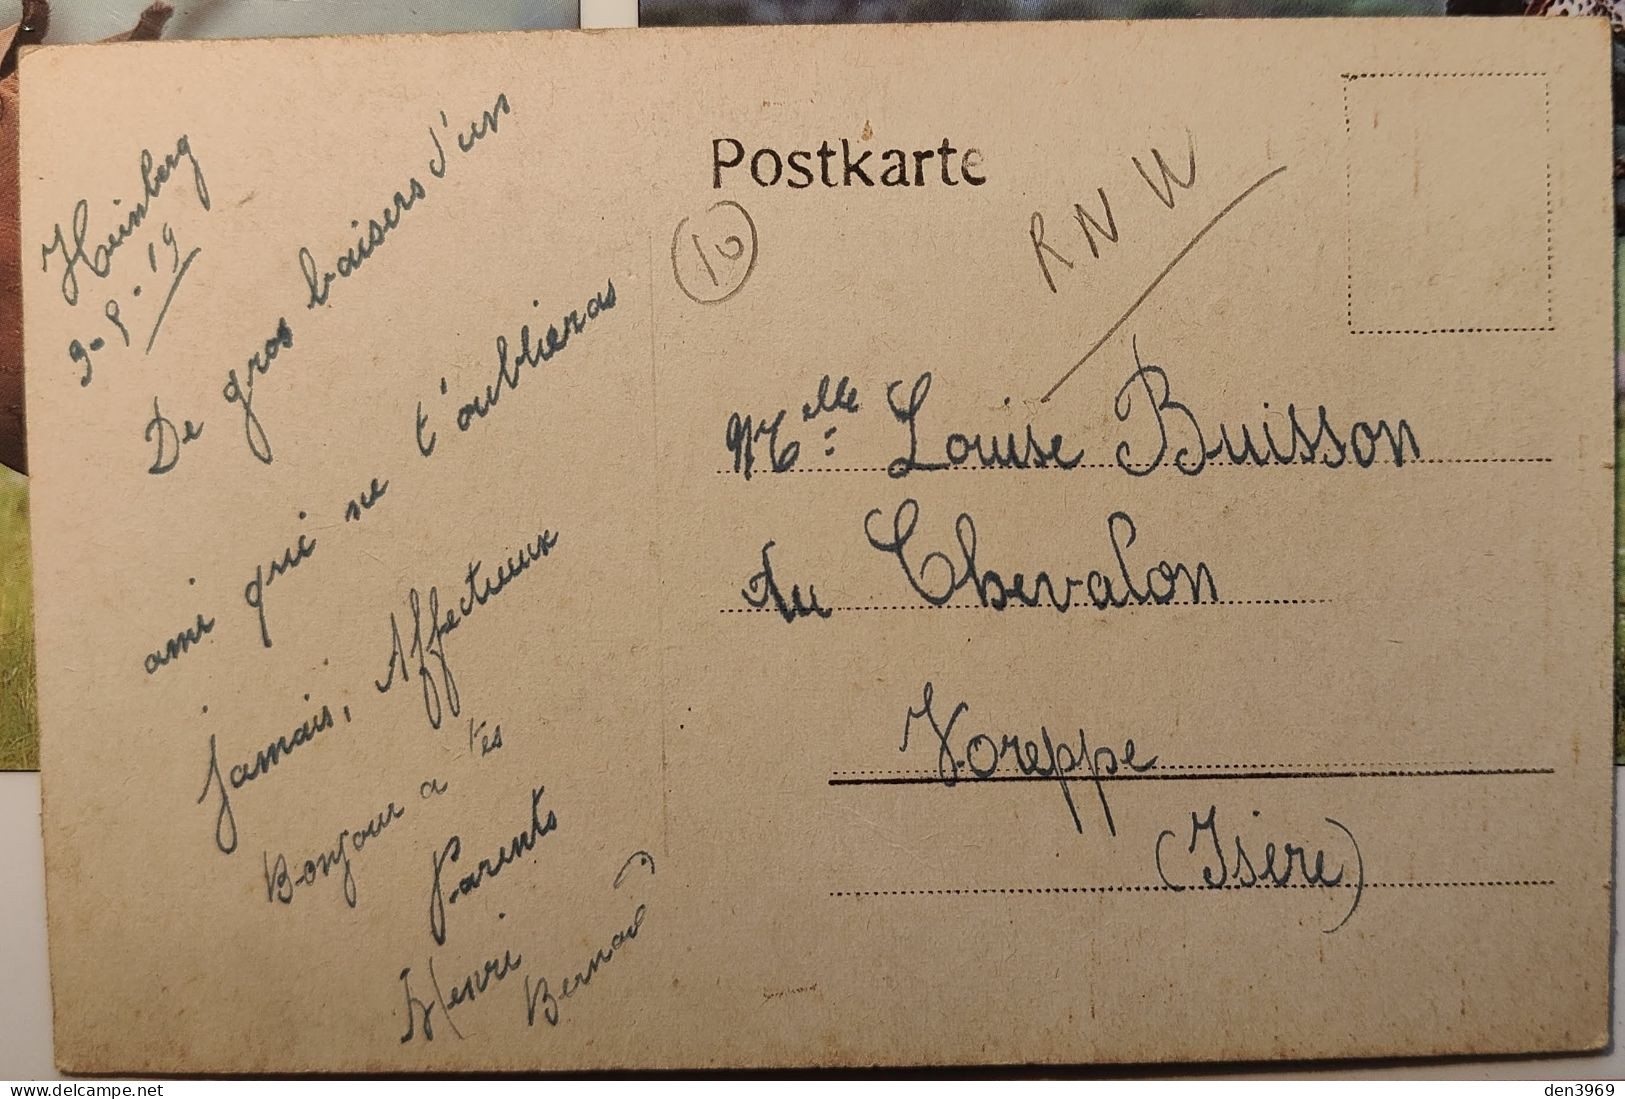 Heinberg
3-5-19
De gros baisers d'un
ami qui ne t'oublieras
jamais, Affectueux
Bonjour a tes
Parents
Henri
Postkarte
10
RNW
Melle: Louise Buisson
du Chevalon
Voreppe
(Isère)
den3969